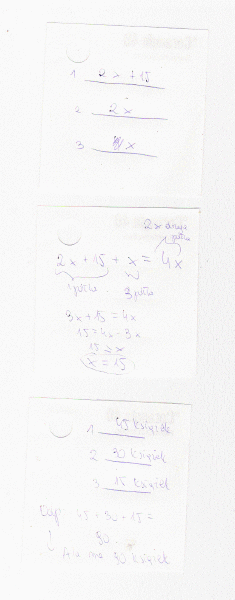 1 2x + 15
2 2x
3 x
2x druga półka
2x + 15 + x = 4x
1 półka 3 półka
3x + 15 = 4x
15 = 4x - 3x
15 = x
x = 15
1 45 książek
2 30 książek
3 15 książek
Odp. 45 + 30 + 15 =
90
ma 90 książek